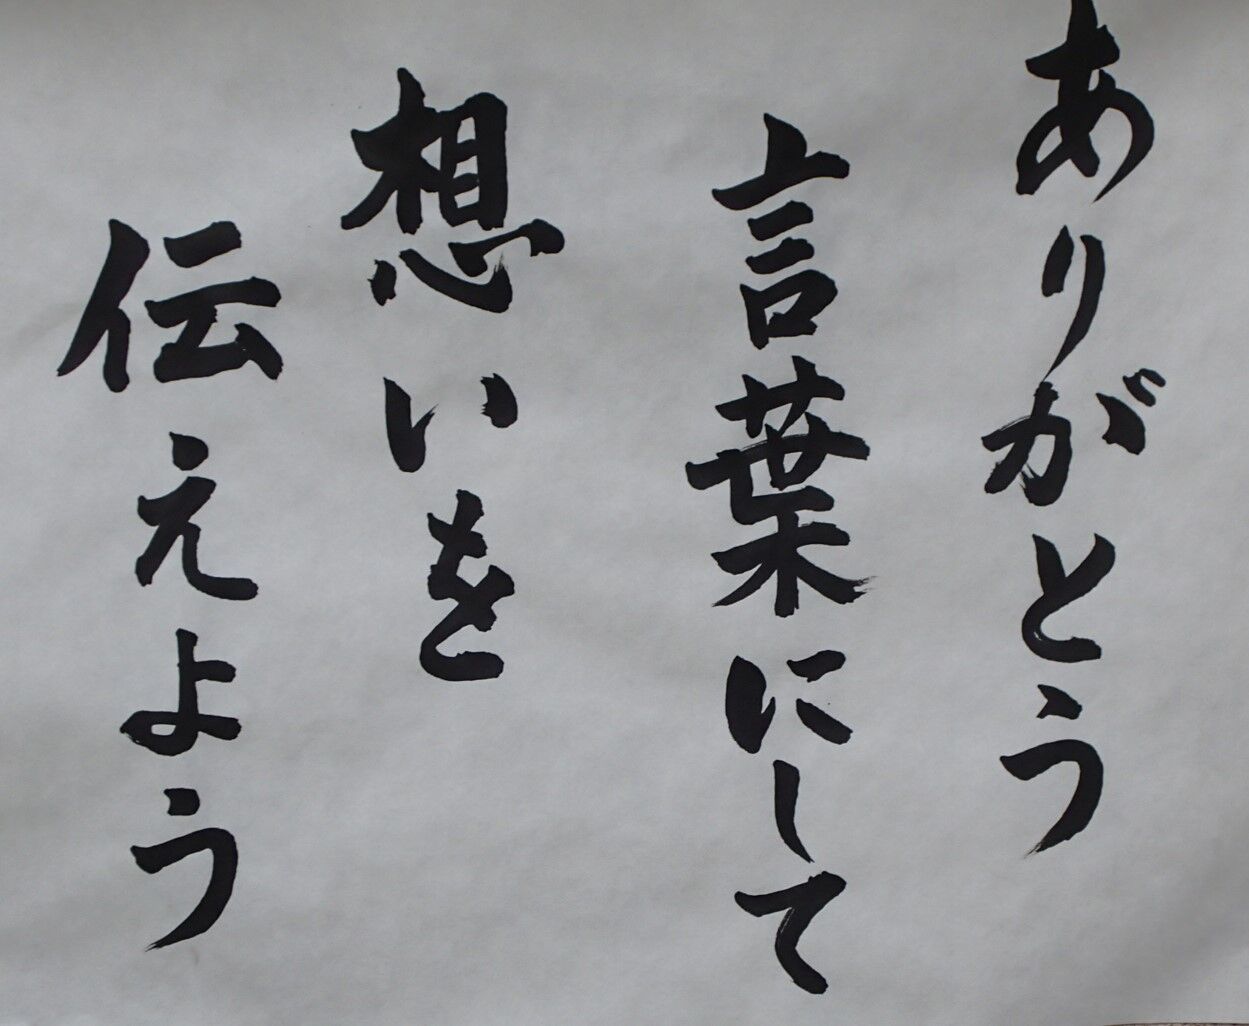 ありがとう
言葉にして
想いを
伝えよう